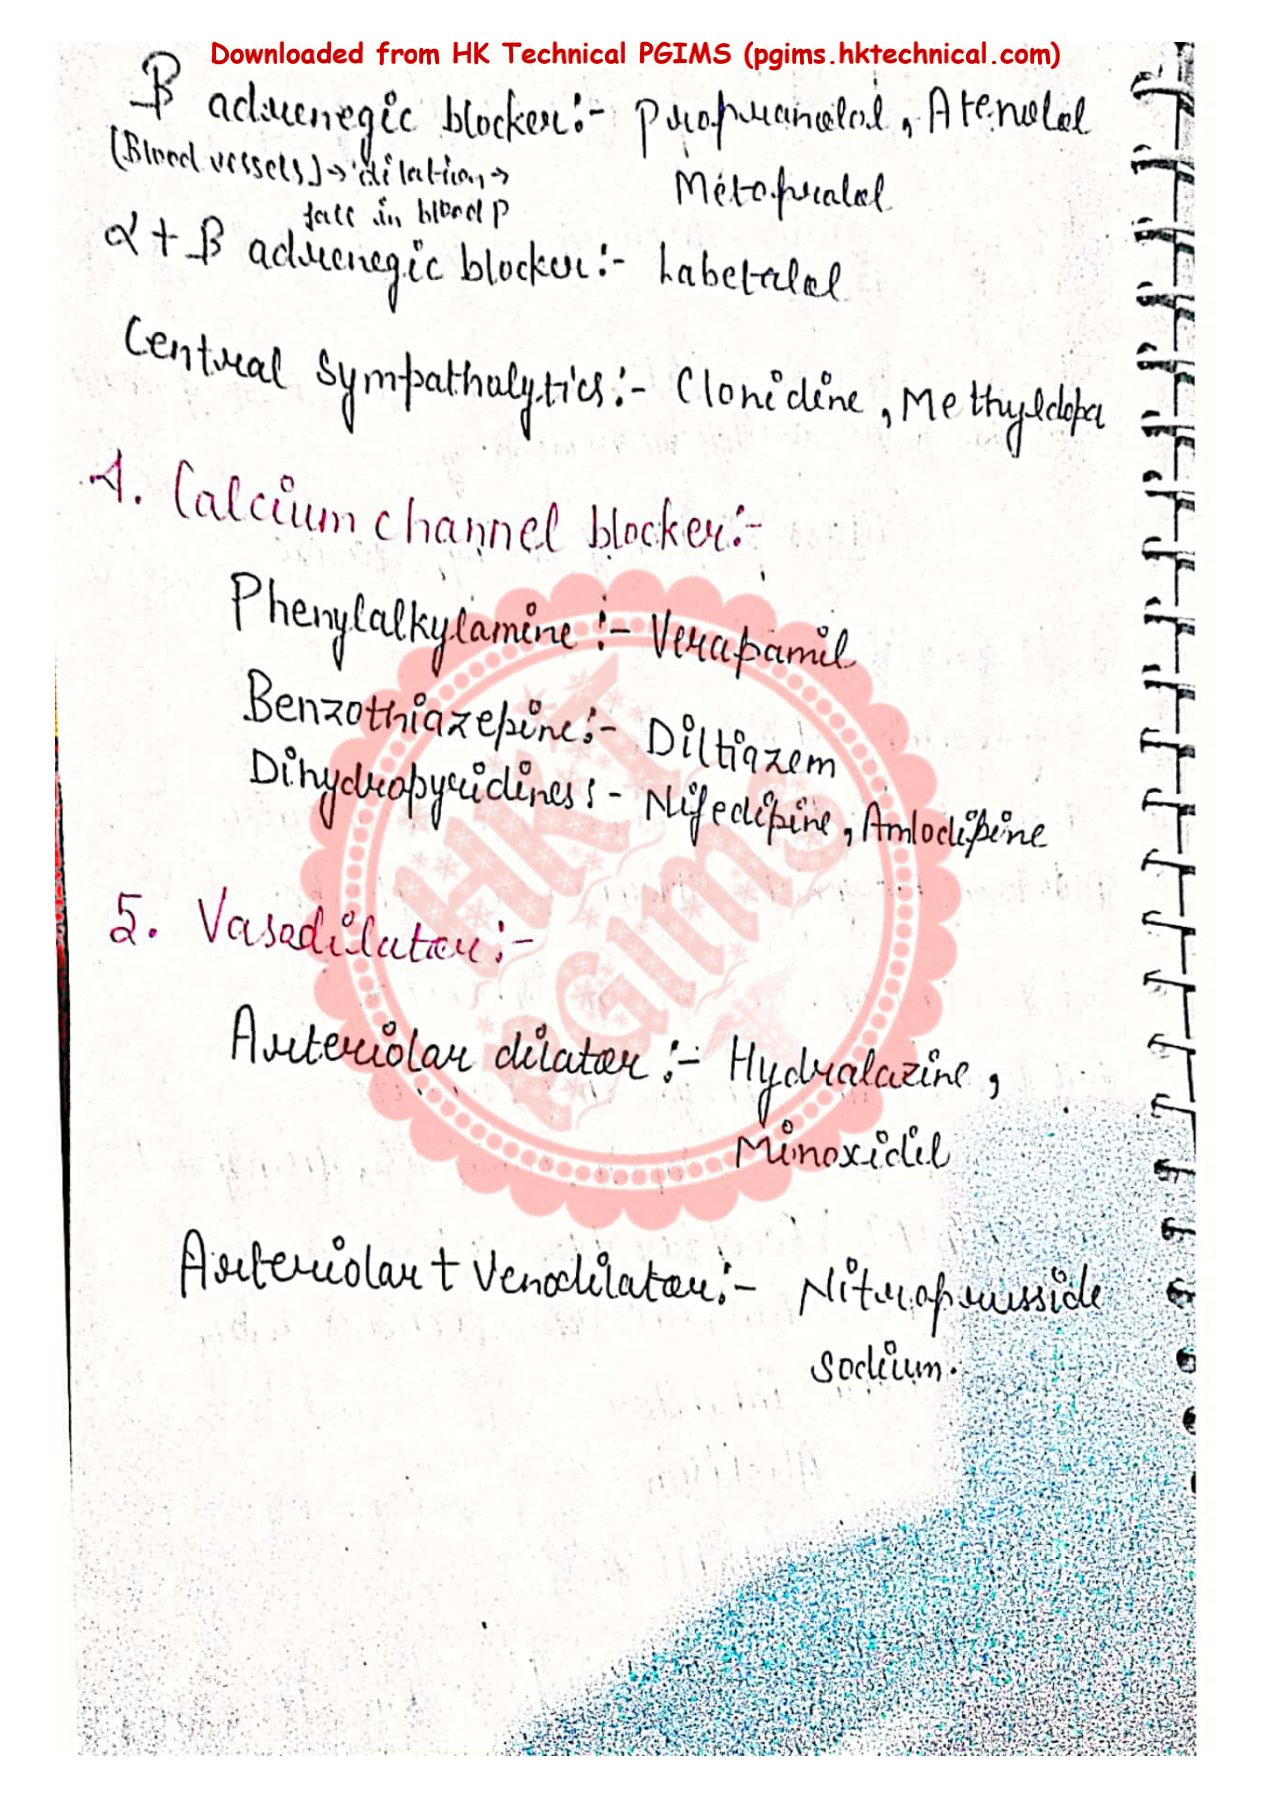 Downloaded from HK Technical PGIMS (pgims.hktechnical.com)
β adrenegic blocker:- Propranolol, Atenolol
(Blood vessels) → dilation →
Metoprolol
fall in blood p
α + β adrenegic blocker:- Labetalol
Central Sympatholytics:- Clonidine, Methyldopa
4. Calcium channel blocker:-
Phenylalkylamine:- Verapamil
Benzothiazepine:- Diltiazem
Dihydropyridines:- Nifedipine, Amlodipine
5. Vasodilator:-
Arteriolar dilator:- Hydralazine,
Minoxidil
Arteriolar + Venodilator:- Nitroprusside
sodium.
HKT
PGIMS